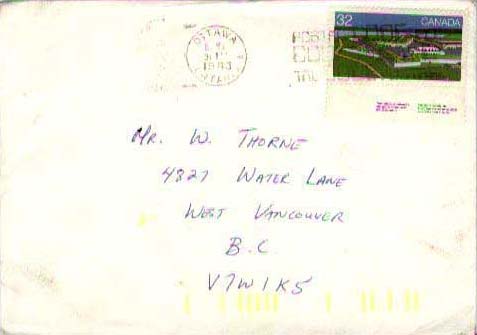 OTTAWA
1983
ONTARIO
32
CANADA
MR. W. THORNE
4827 WATER LANE
WEST VANCOUVER
B.C.
V7W1K5